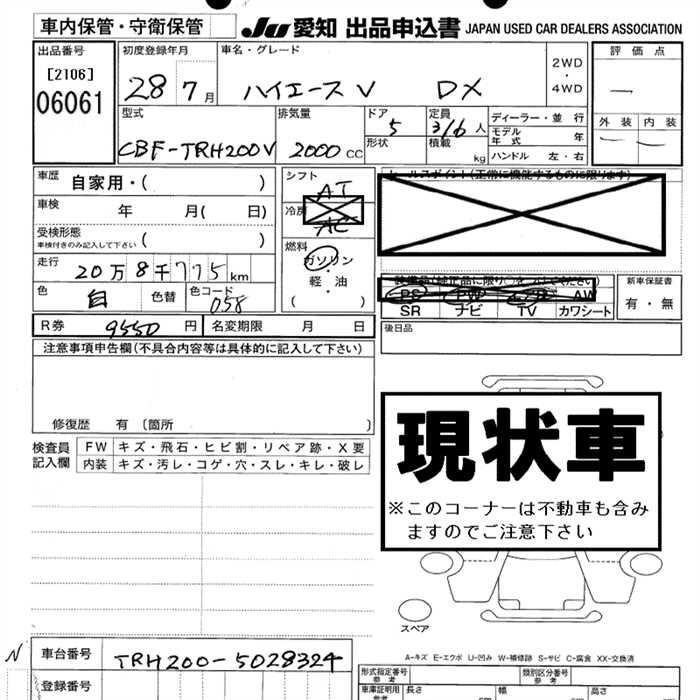 車内保管・守衛保管
JU 愛知 出品申込書 JAPAN USED CAR DEALERS ASSOCIATION
出品番号
[2106]
06061
初度登録年月
28 7月
車名・グレード
ハイエースV DX
2WD
・
4WD
評価点
—
外装 内装
— —
型式
CBF-TRH200V
排気量
2000cc
ドア
5
形状
定員
3/6人
積載
kg
ディーラー・並行
モデル年式 年
ハンドル 左・右
車歴
自家用・( )
車検
年 月( 日)
受検形態
車検付きのみ記入して下さい ( )
走行
20万8千775km
色
白
色替
色コード
058
シフト
AT
冷房
AC
燃料
ガソリン
・
軽・油
( )
セールスポイント(正常に機能するものに限ります)
装備品(純正品に限り○をつけてください)
PS PW エアB AW
SR ナビ TV カワシート
新車保証書
有・無
R券 9550円
名変期限 月 日
後日品
注意事項申告欄(不具合内容等は具体的に記入して下さい)
修復歴 有 [箇所 ]
検査員記入欄
FW キズ・飛石・ヒビ割・リペア跡・X要
内装 キズ・汚レ・コゲ・穴・スレ・キレ・破レ
現状車
※このコーナーは不動車も含み
ますのでご注意下さい
スペア
A-キズ E-エクボ U-凹み W-補修跡 S-サビ C-腐食 XX-交換済
N 車台番号 TRH200-5028324
登録番号
形式指定番号
参考
類別区分番号
参考
車庫証明用
参考
長さ
cm
幅
cm
高さ
cm